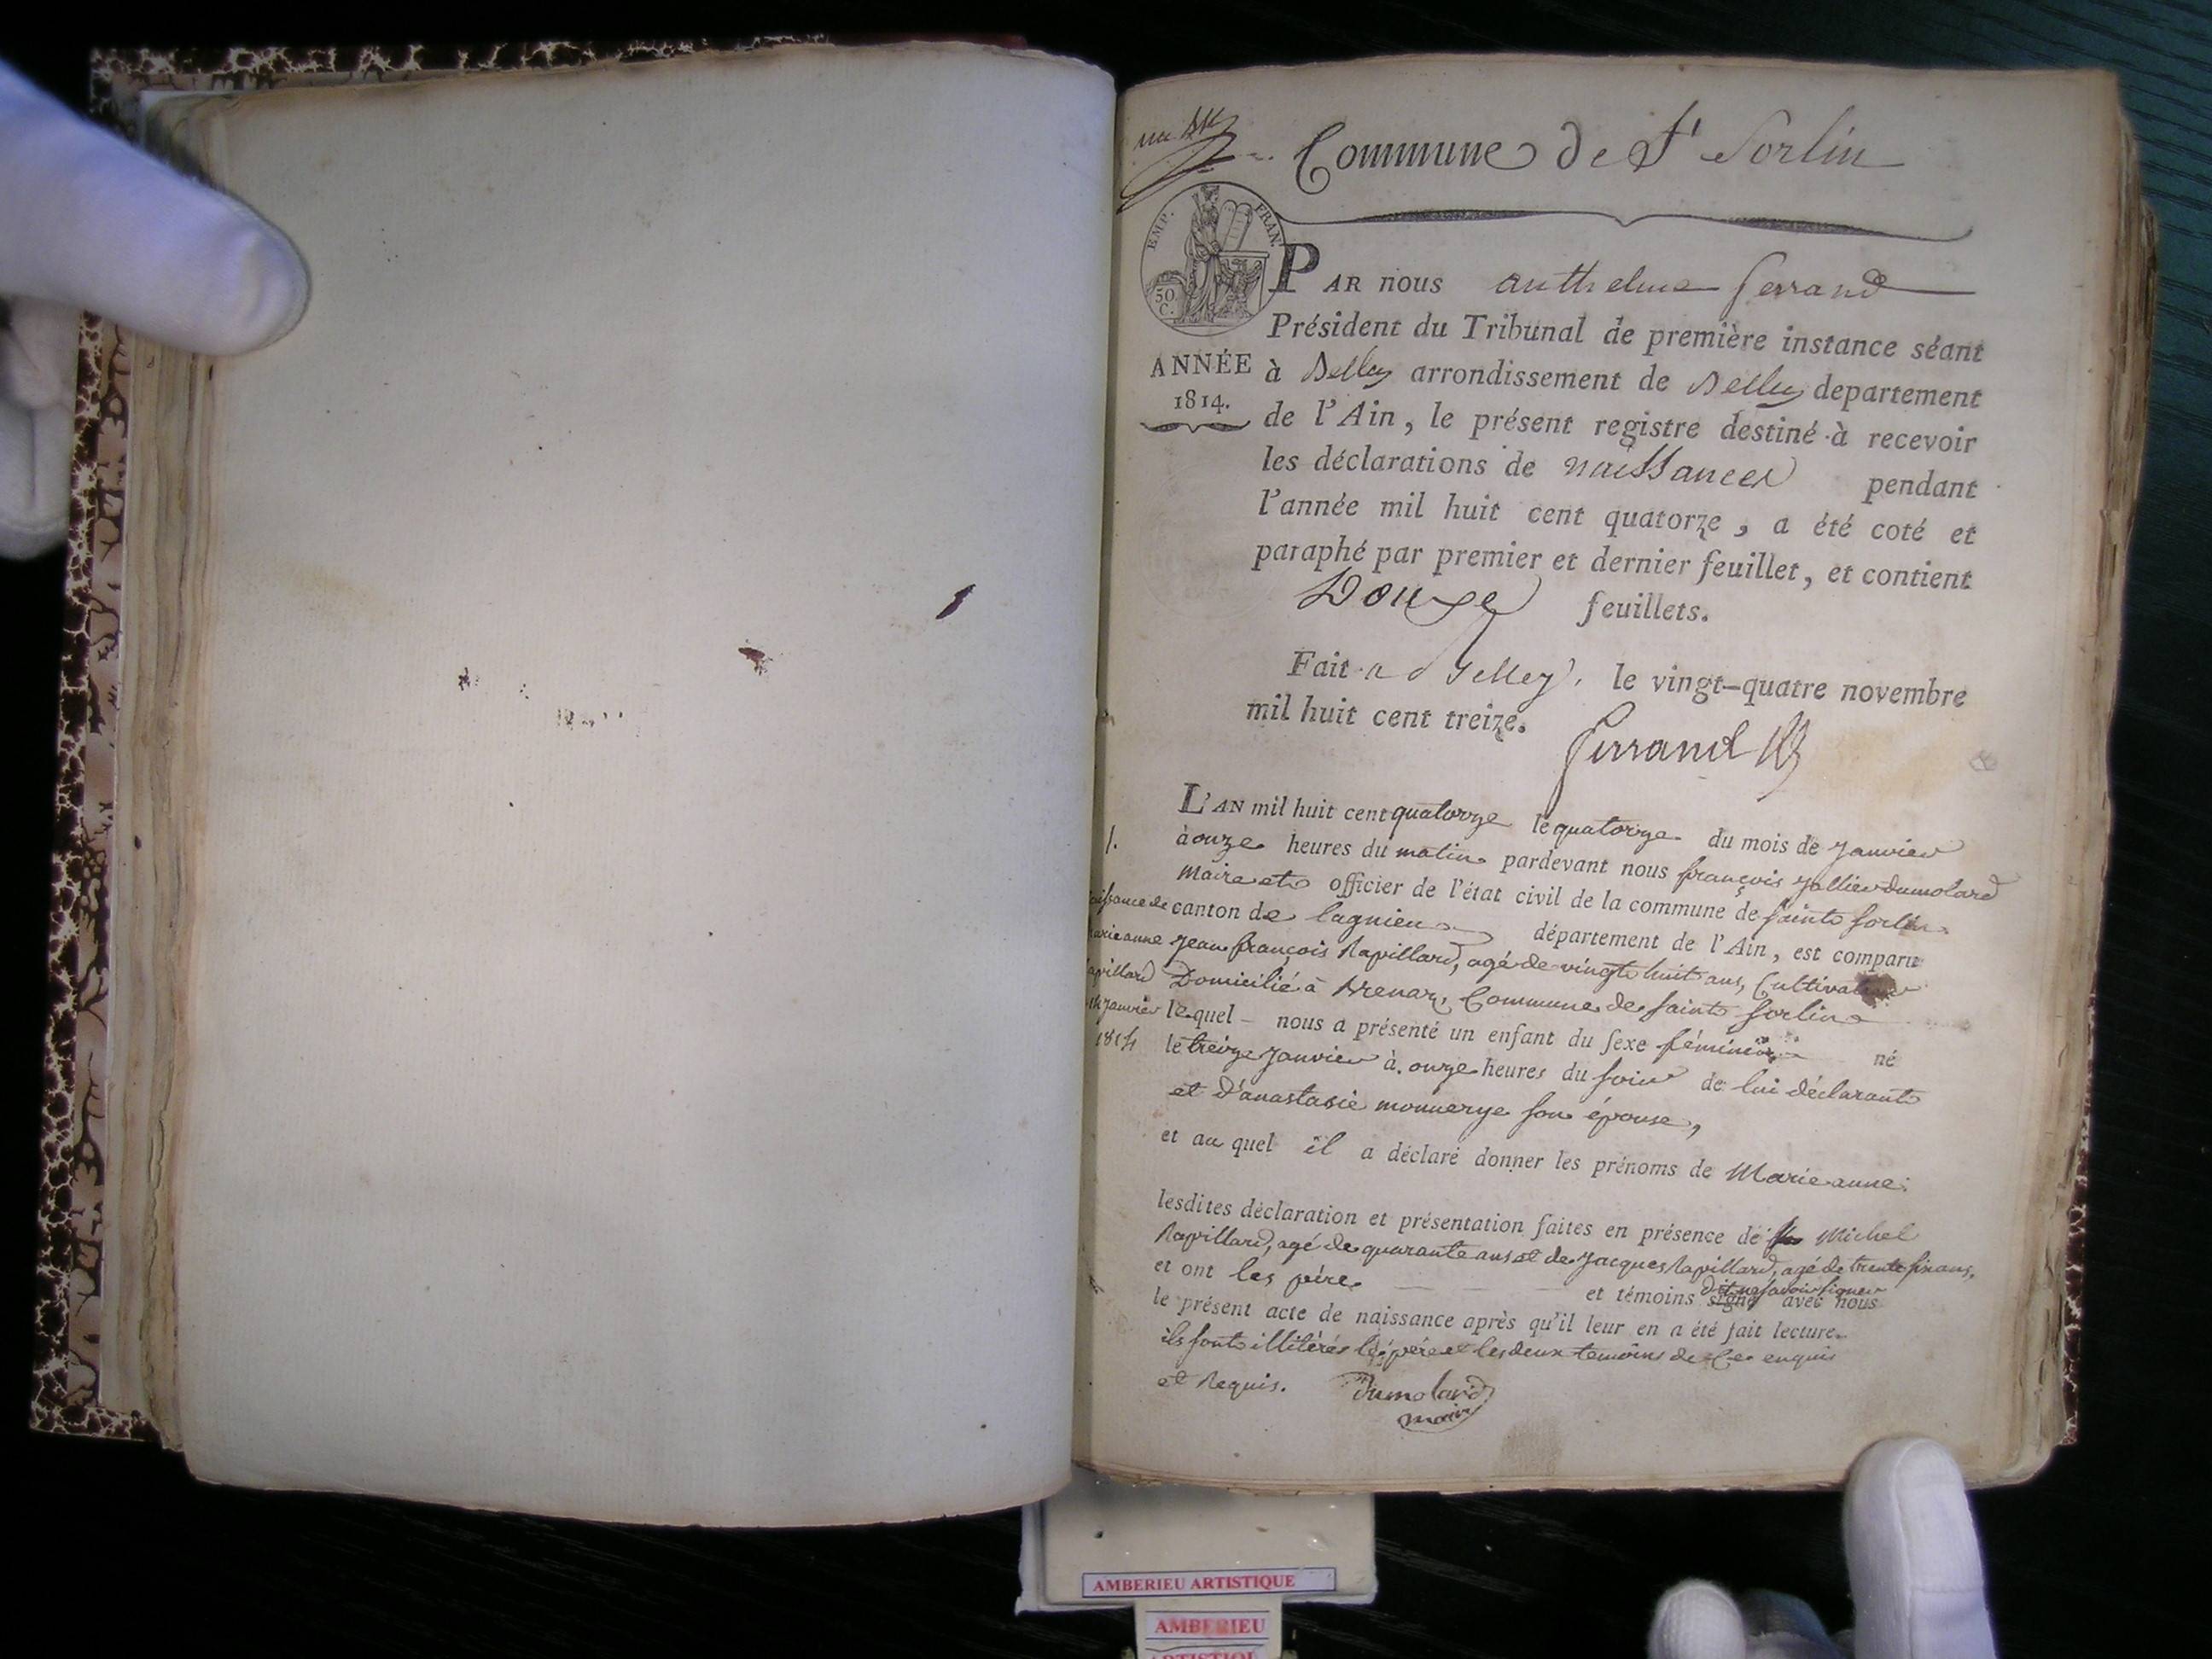 Commune de St Sorlin
EMP. FRAN.
50
C.
ANNÉE
1814.
PAR nous anthelme ferrand
Président du Tribunal de première instance séant
à Belley arrondissement de Belley departement
de l'Ain, le présent registre destiné à recevoir
les déclarations de naissances pendant
l'année mil huit cent quatorze, a été coté et
paraphé par premier et dernier feuillet, et contient
Douze feuillets.
Fait à Belley, le vingt-quatre novembre
mil huit cent treize.
ferrand
1.
naissance de
marie anne
rapillard
14 janvier
1814
L'AN mil huit cent quatorze le quatorze du mois de janvier
à onze heures du matin pardevant nous françois jallier dumolard
maire et officier de l'état civil de la commune de saint sorlin
canton de lagnieu département de l'Ain, est comparu
jean françois Rapillard, agé de vingt huit ans, Cultivateur
Domicilié à Brenaz, Commune de saint sorlin
lequel nous a présenté un enfant du sexe féminin né
le treize janvier à onze heures du soir de lui déclarant
et d'anastasie monnerye son épouse,
et au quel il a déclaré donner les prénoms de Marie anne
lesdites déclaration et présentation faites en présence de Michel
Rapillard, agé de quarante ans et de jacques rapillard, agé de trente six ans,
et ont les père et témoins signé dit ne savoir signer avec nous
le présent acte de naissance après qu'il leur en a été fait lecture.
ils sont illitérés le père et les deux temoins de ce enquis
et Requis. Dumolard
maire
AMBERIEU ARTISTIQUE
AMBERIEU
ARTISTIQUE